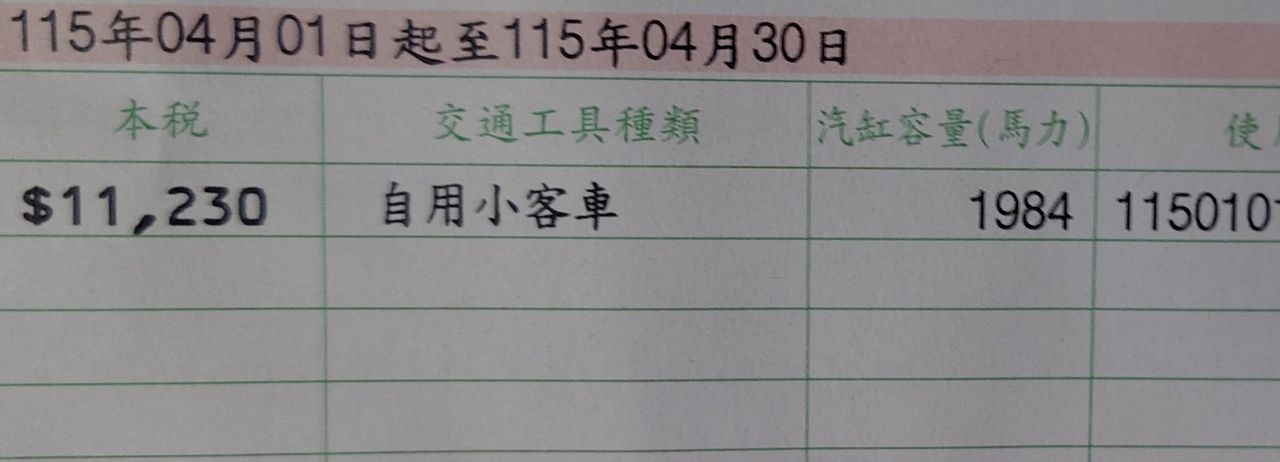 115年04月01日起至115年04月30日
本稅 交通工具種類 汽缸容量(馬力) 使
$11,230 自用小客車 1984 1150101